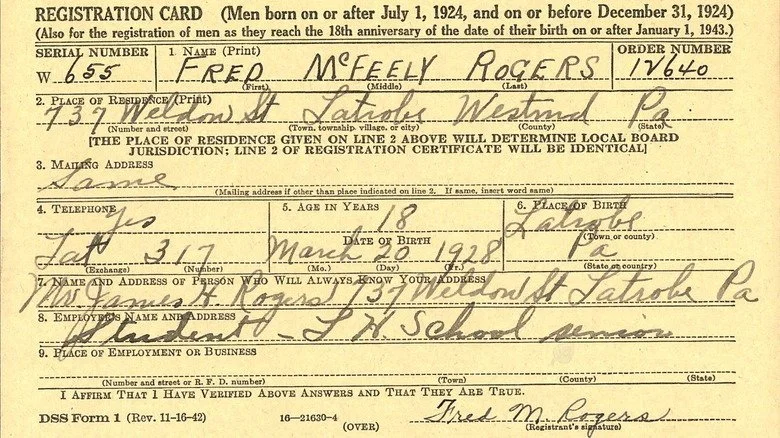 REGISTRATION CARD (Men born on or after July 1, 1924, and on or before December 31, 1924)
(Also for the registration of men as they reach the 18th anniversary of the date of their birth on or after January 1, 1943.)
SERIAL NUMBER 1. NAME (Print) ORDER NUMBER
W 655 FRED McFEELY ROGERS 12640
(First) (Middle) (Last)
2. PLACE OF RESIDENCE (Print)
737 Weldon St Latrobe Westmd Pa
(Number and street) (Town, township, village, or city) (County) (State)
[THE PLACE OF RESIDENCE GIVEN ON LINE 2 ABOVE WILL DETERMINE LOCAL BOARD
JURISDICTION; LINE 2 OF REGISTRATION CERTIFICATE WILL BE IDENTICAL]
3. MAILING ADDRESS
Same
(Mailing address if other than place indicated on line 2. If same, insert word same)
4. TELEPHONE 5. AGE IN YEARS 6. PLACE OF BIRTH
Yes 18 Latrobe
DATE OF BIRTH (Town or county)
Lat 317 March 20 1928 Pa
(Exchange) (Number) (Mo.) (Day) (Yr.) (State or country)
7. NAME AND ADDRESS OF PERSON WHO WILL ALWAYS KNOW YOUR ADDRESS
Mr James H Rogers 737 Weldon St Latrobe Pa
8. EMPLOYER'S NAME AND ADDRESS
Student - L H. School senior
9. PLACE OF EMPLOYMENT OR BUSINESS
(Number and street or R. F. D. number) (Town) (County) (State)
I AFFIRM THAT I HAVE VERIFIED ABOVE ANSWERS AND THAT THEY ARE TRUE.
DSS Form 1 (Rev. 11-16-42) 16—21630-4 Fred M. Rogers
(OVER) (Registrant's signature)